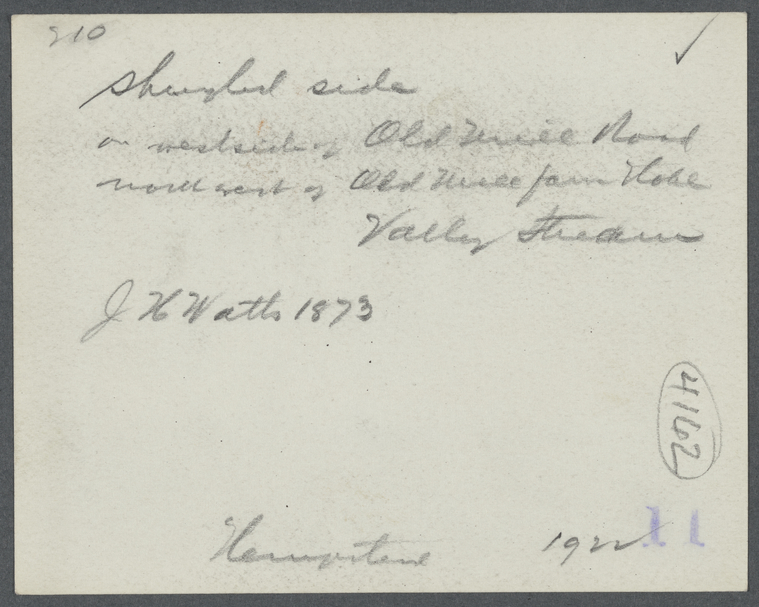 210
Shingled side
on westside of Old Mill Road
northwest of Old Mill farm Hotel
Valley Stream
J H Watts 1873
4162
Hempstead 1922
11